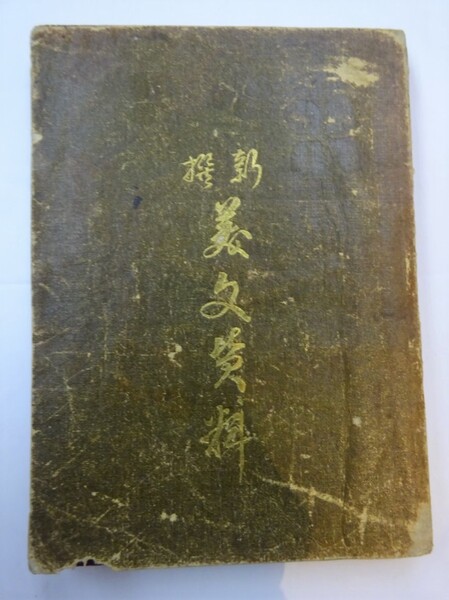 新撰
美文資料